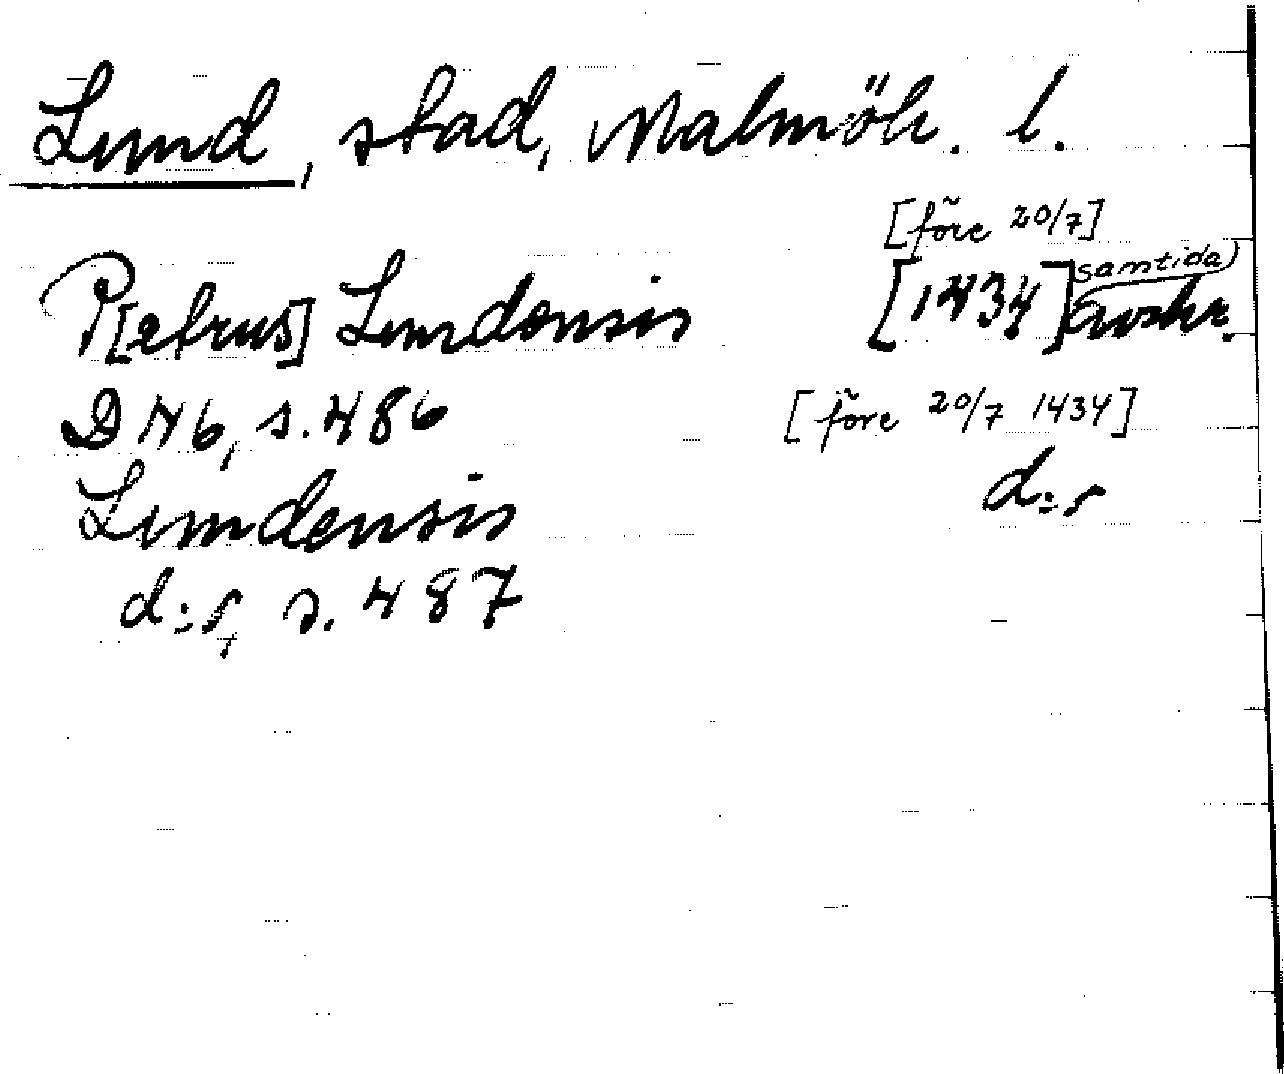 Lund, stad, Malmöh. l.
[före 20/7]
P[etrus] Lundensis [1434] samtida avskr.
DN 6, s. 486 [före 20/7 1434]
Lundensis d:s
d:s, s. 487